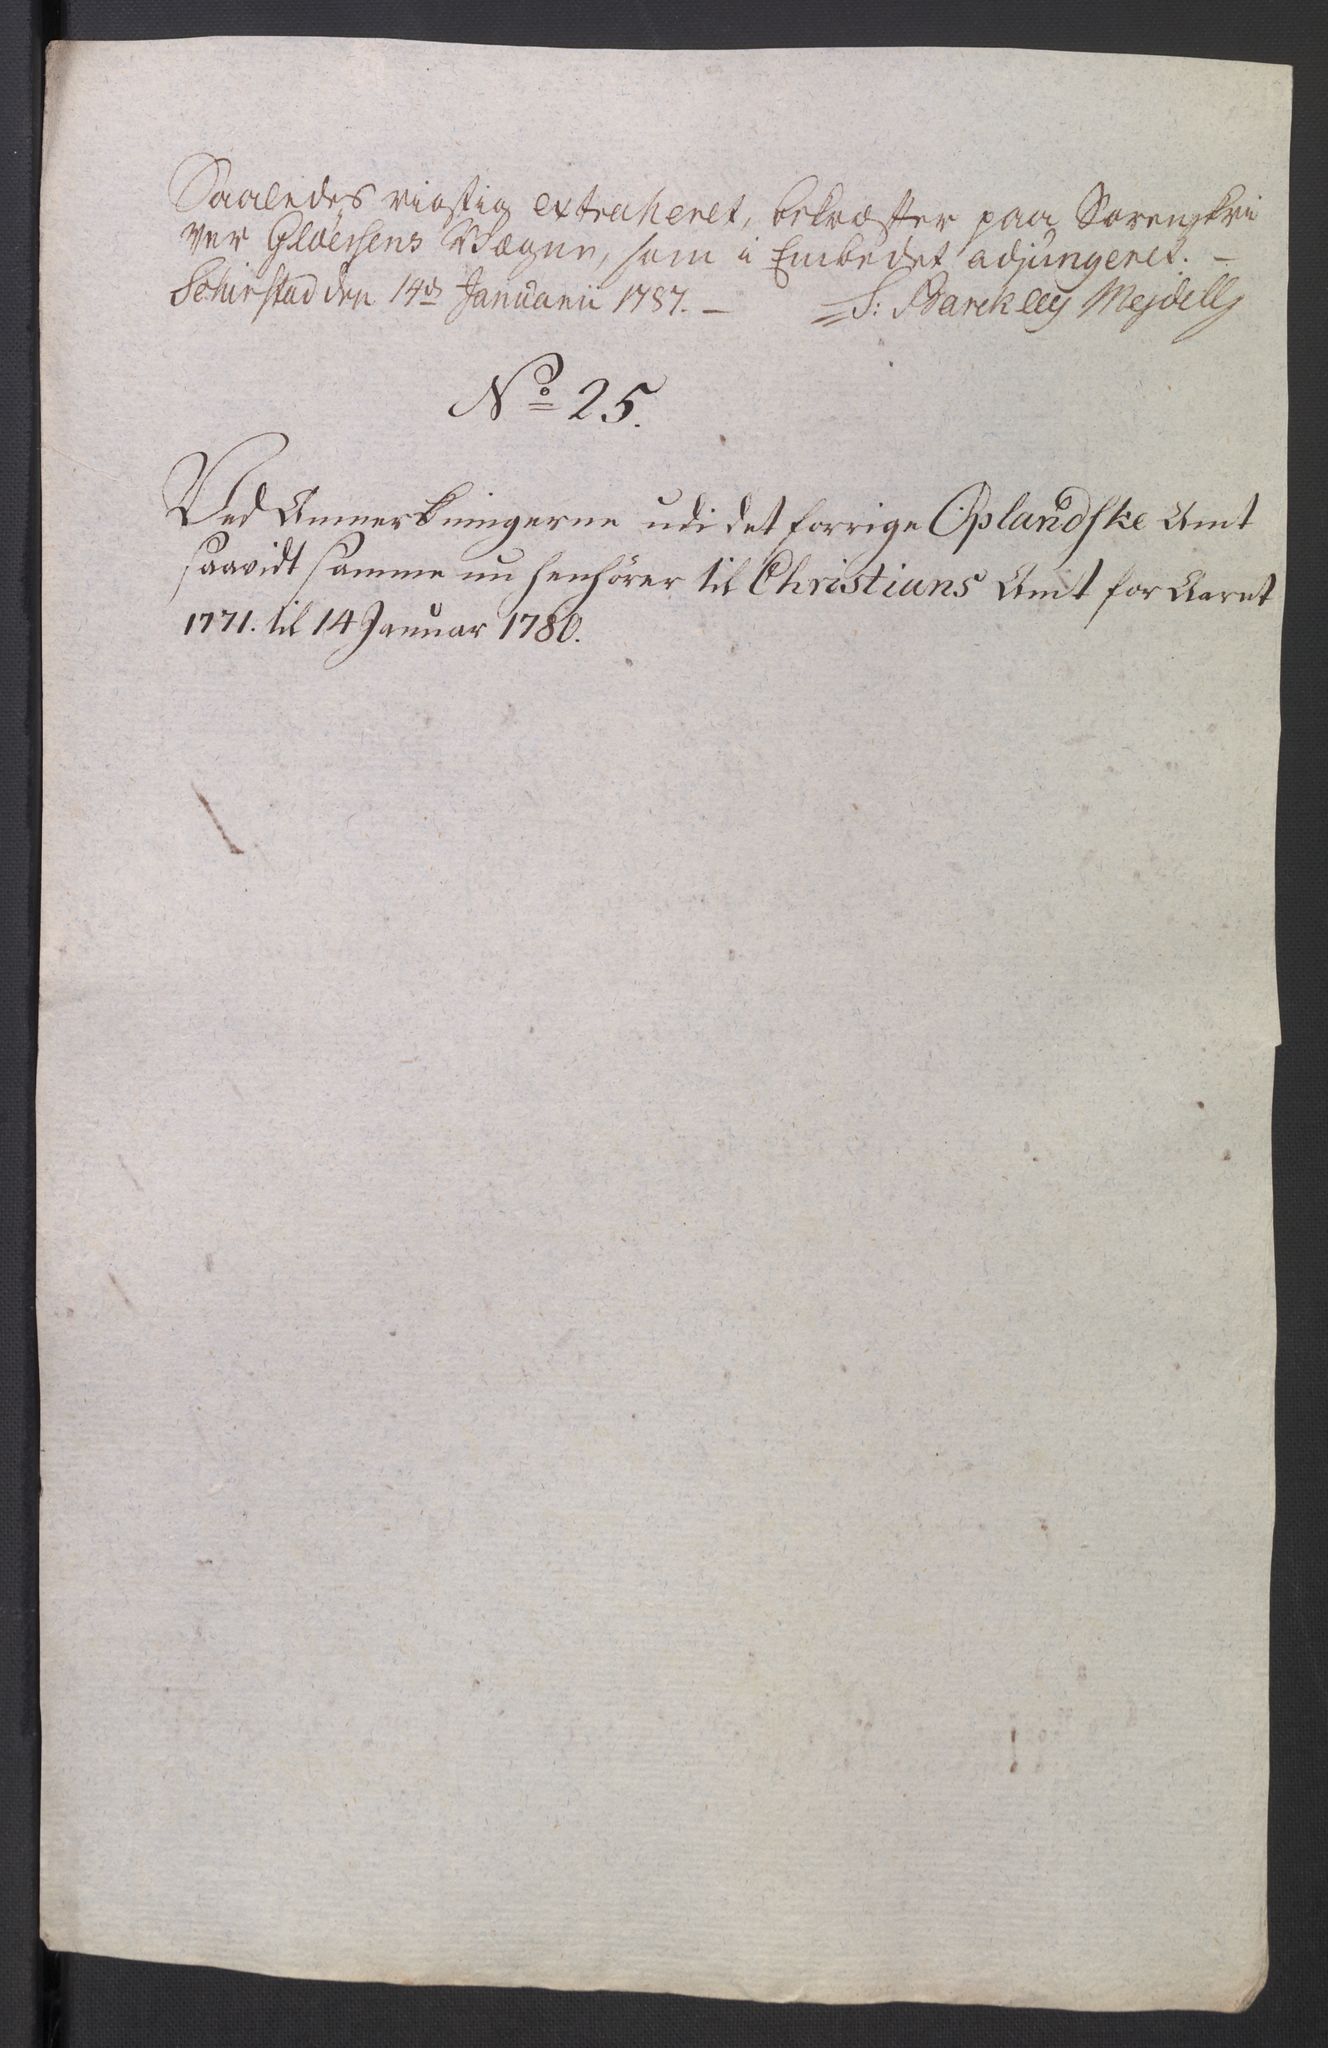 Saaledes rigtig extraheret, bekræfter paa Sorenskri
ver Gløersens Vægne, som i Embedet adjungeret. –
Schirstad den 14de Januarii 1787. – S: Barckley Mejdell
No 25.
Ved Anmerkningerne udi det forrige Oplandske Amt
saavidt samme nu henhører til Christians Amt for Aaret
1771. til 14 Januar 1780.